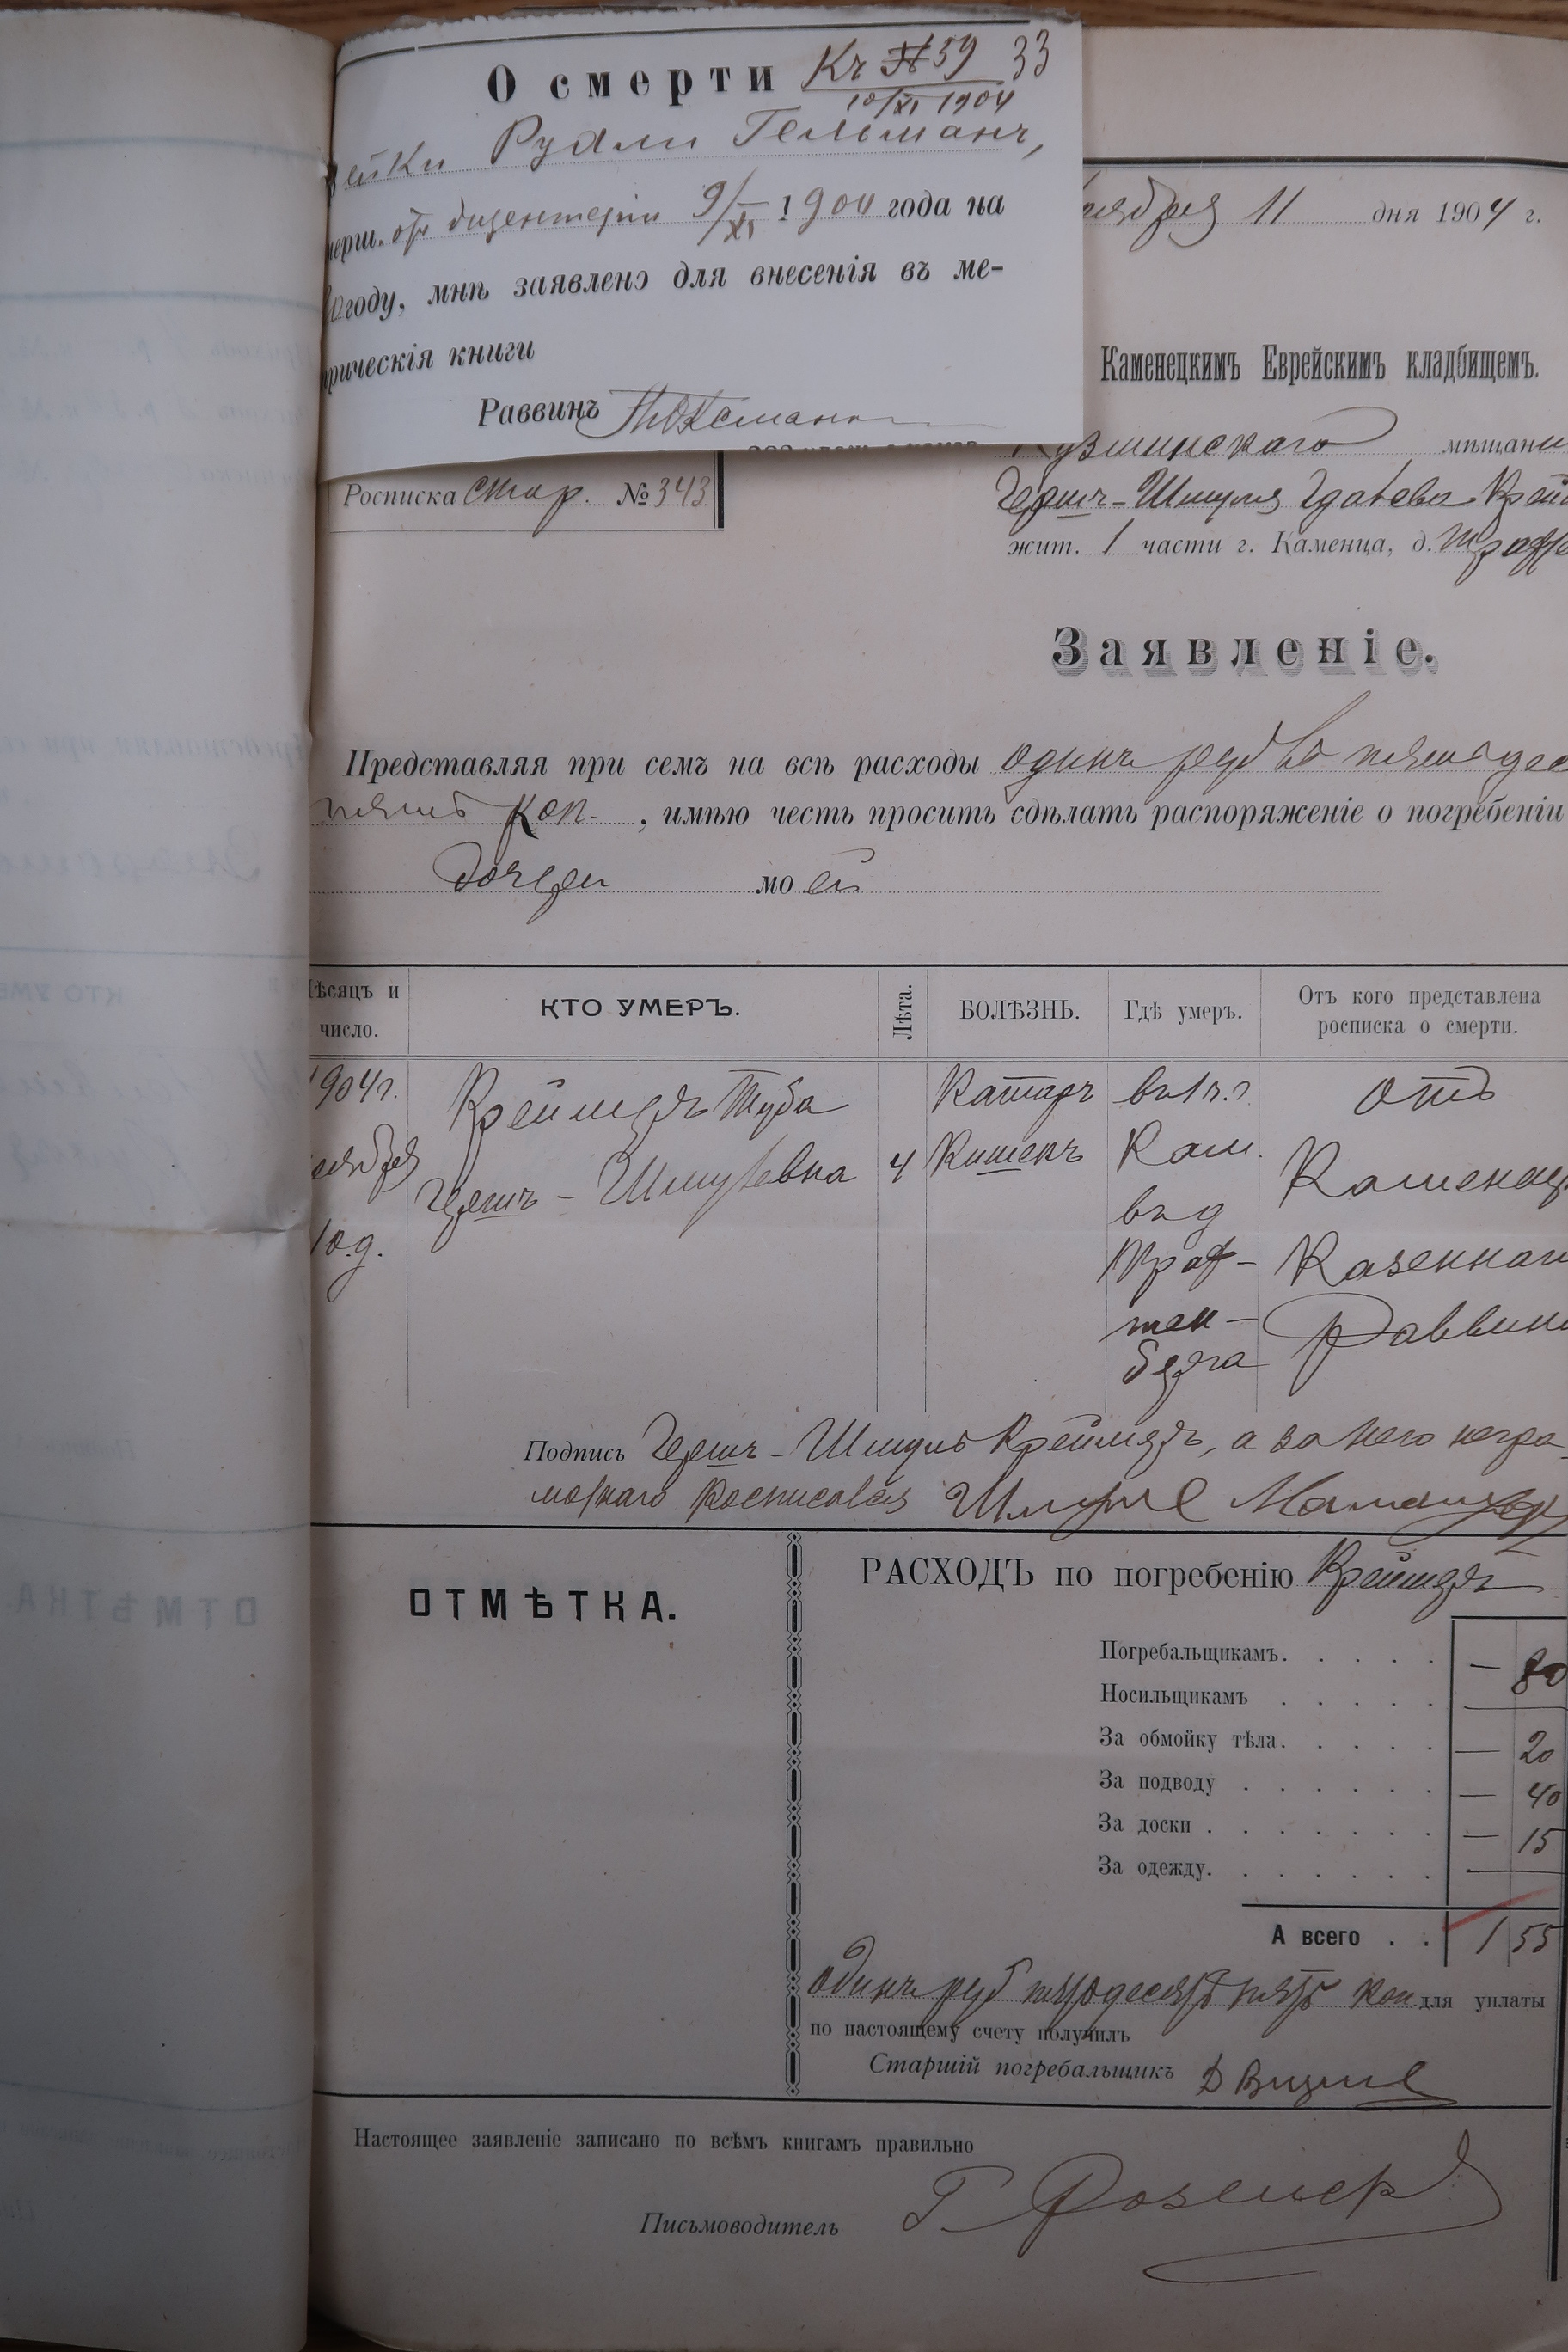 О смерти Къ № 59 33
10/XI 1904
ейки Рухли Гельманъ,
мерш. отъ дизентеріи 9/XI 1904 года на
году, мнѣ заявлено для внесенія въ ме-
трическія книги
Раввинъ
оября 11 дня 1904 г.
Каменецкимъ Еврейскимъ кладбищемъ.
Кузминскаго мѣщани
Гершъ-Шмуля
жит. 1 части г. Каменца, д.
Росписка стар. № 343
Заявленіе.
Представляя при семъ на всѣ расходы одинъ руб ль пятьдес
пять коп. , имѣю честь просить сдѣлать распоряженіе о погребеніи
дочери моей
Мѣсяцъ и число. КТО УМЕРЪ. Лѣта. БОЛѢЗНЬ. Гдѣ умеръ. Отъ кого представлена росписка о смерти.
1904г. Креймеръ Туба Катаръ въ 1 ч. г. Отъ
оября Гершъ-Шмулевна 4 Кишекъ Кам. Каменец
10 д. въ д Казеннаго
Кроф- Раввина
тен-
берга
Подпись Гершъ-Шмуль Креймеръ, а за него негра-
мотнаго росписался Шмуль
ОТМѢТКА.
РАСХОДЪ по погребенію Креймеръ
Погребальщикамъ. . . . . — 80
Носильщикамъ . . . . . —
За обмойку тѣла. . . . . — 20
За подводу . . . . . . — 40
За доски . . . . . . . — 15
За одежду. . . . . . . —
А всего . . 1 55
одинъ руб пятьдесятъ пять коп для уплаты
по настоящему счету получилъ
Старшій погребальщикъ
Настоящее заявленіе записано по всѣмъ книгамъ правильно
Письмоводитель Г. Розенер